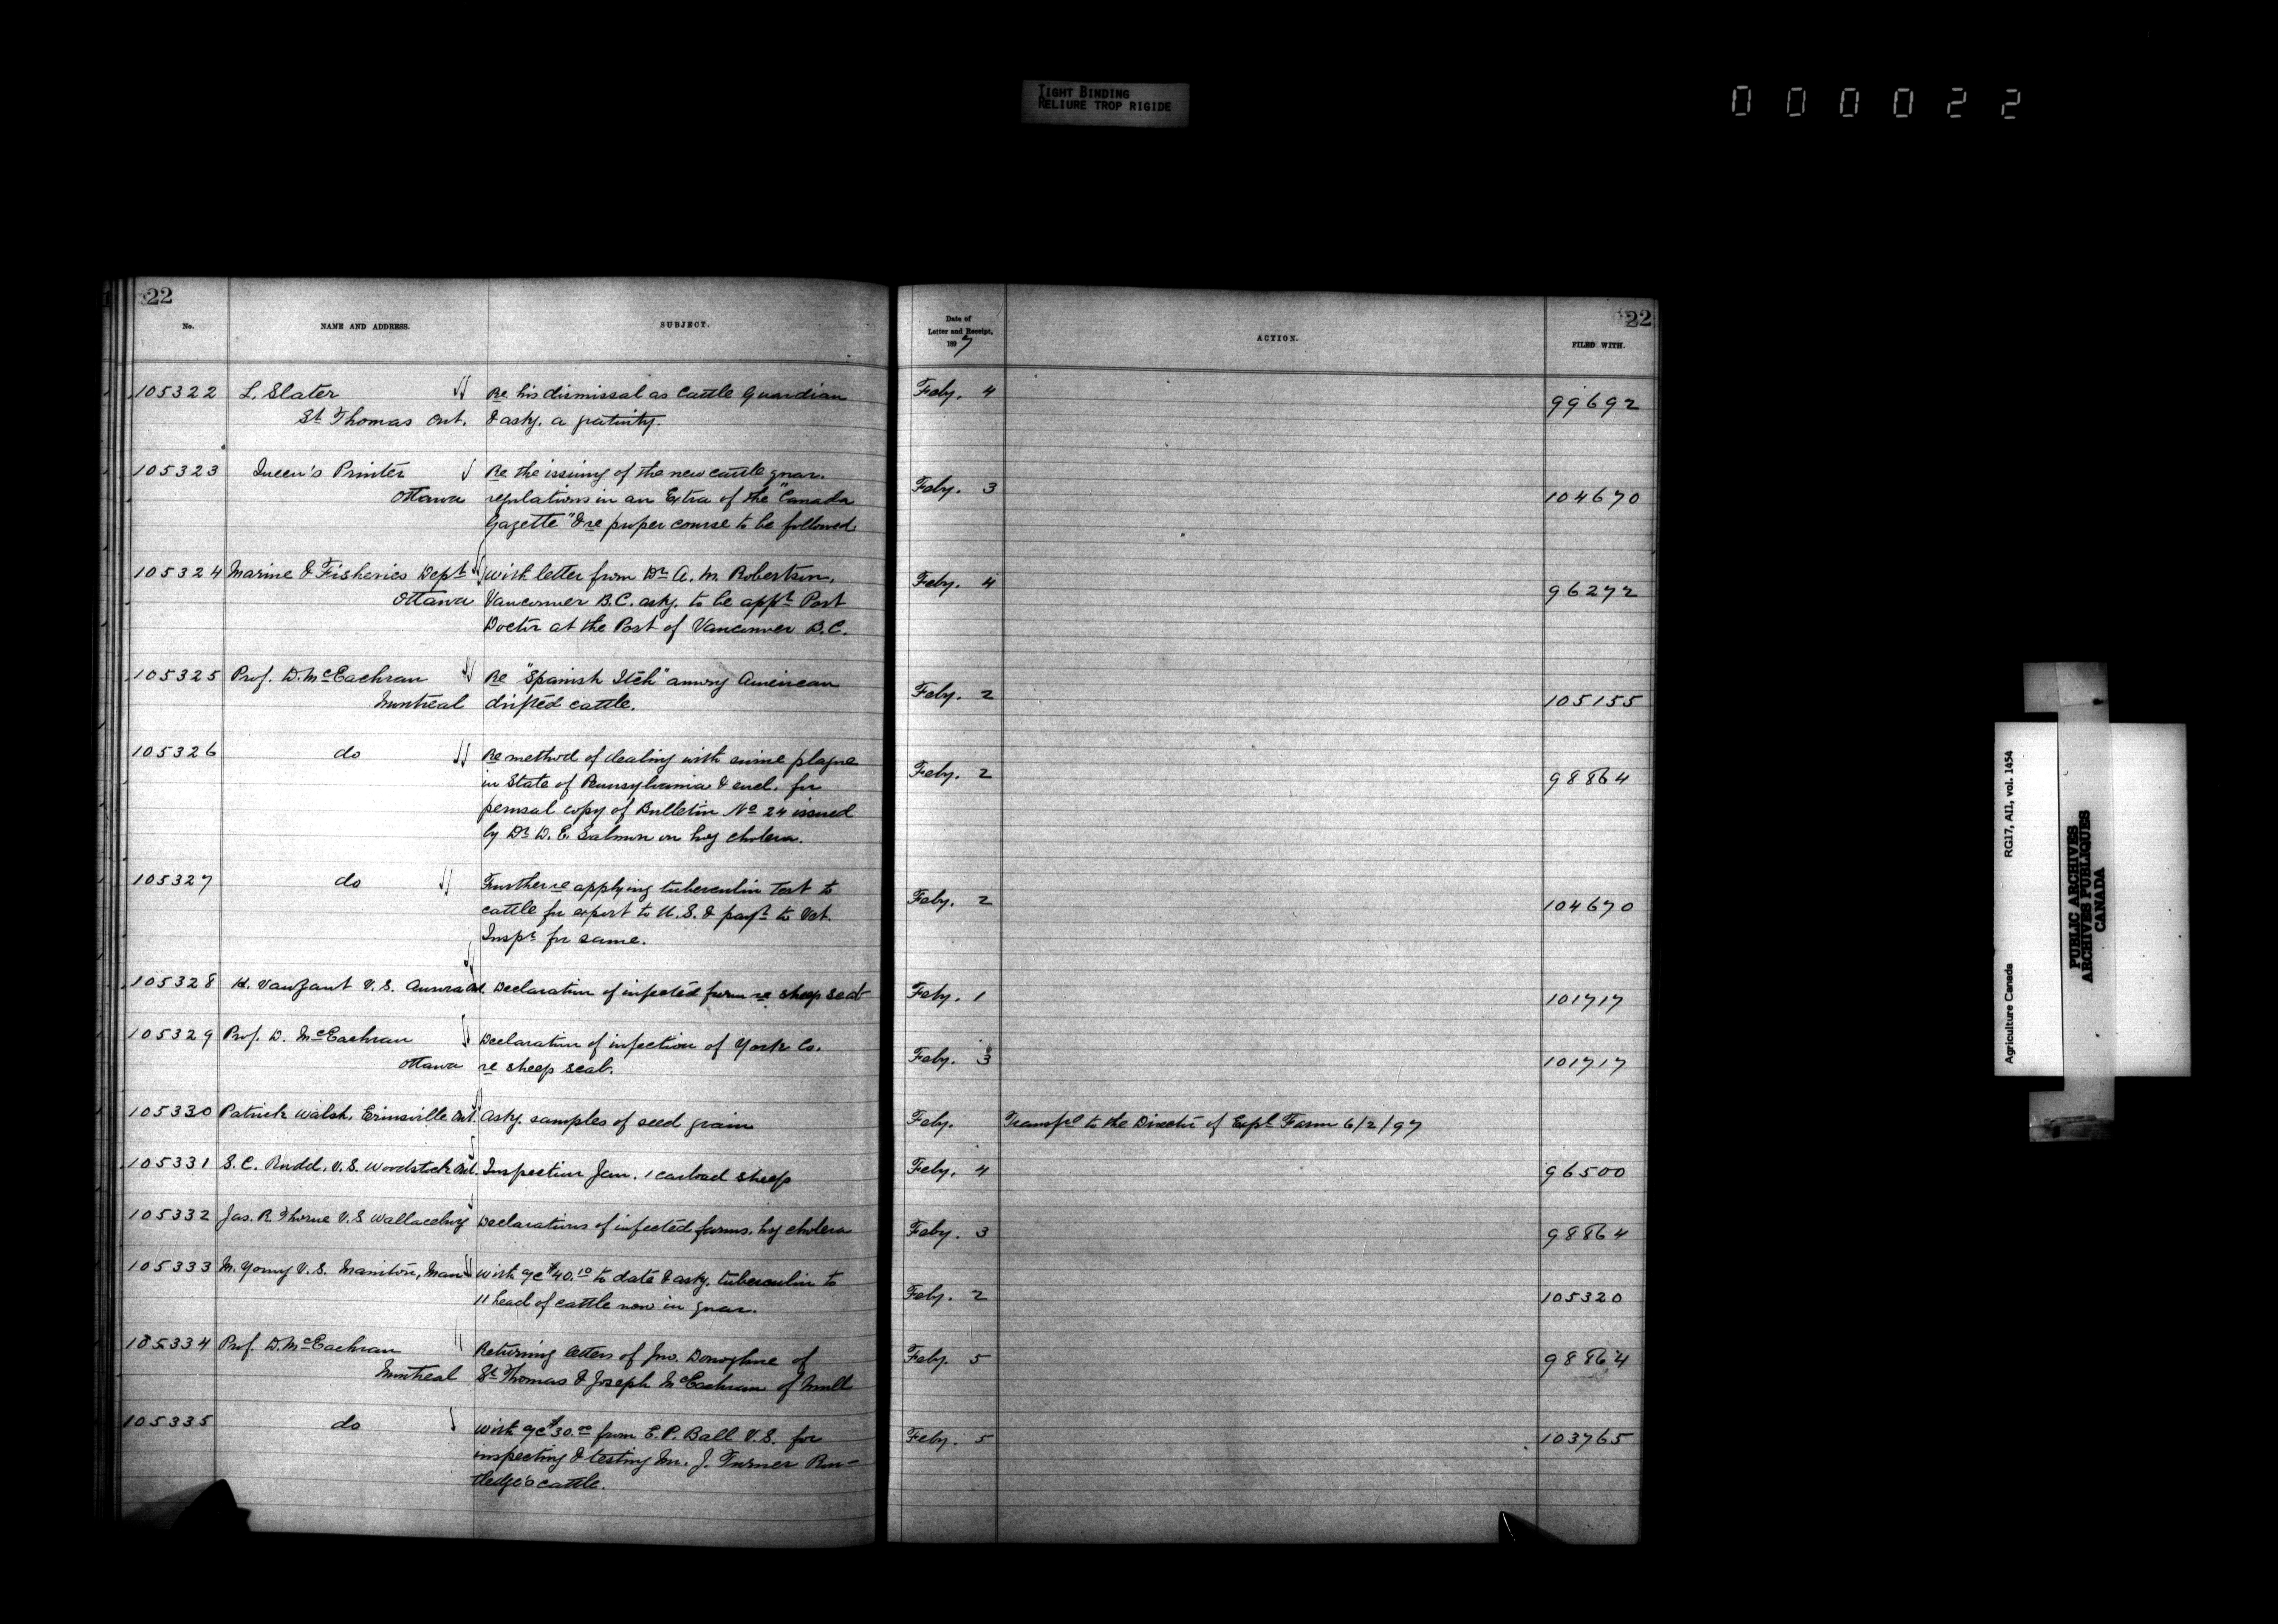 TIGHT BINDING
RELIURE TROP RIGIDE
000022
22
No.
NAME AND ADDRESS.
SUBJECT.
Date of
Letter and Receipt,
1897
ACTION.
FILED WITH.
22
105322 L. Slater Re his dismissal as Cattle Guardian Feby. 4 99692
St. Thomas Ont. & askg. a gratuity.
105323 Queen's Printer Re the issuing of the new cattle quar. Feby. 3 104670
Ottawa regulations in an Extra of the "Canada
Gazette" & re proper course to be followed
105324 Marine & Fisheries Dept With letter from Dr A. M. Robertson, Feby. 4 96272
Ottawa Vancouver B.C. askg. to be appt Port
Doctor at the Port of Vancouver B.C.
105325 Prof. D. McEachran Re "Spanish Itch" among American Feby. 2 105155
Montreal drifted cattle.
105326 do Re method of dealing with swine plague Feby. 2 98864
in State of Pennsylvania & encl. for
perusal copy of Bulletin No 24 issued
by Dr D. E. Salmon on hog cholera.
105327 do Further re applying tuberculin test to Feby. 2 104670
cattle for export to U.S. & payt to Vet.
Inspr for same.
105328 H. VanZant V.S. Aurora Ont. Declaration of infected farm re sheep scab Feby. 1 101717
105329 Prof. D. McEachran Declaration of infection of York Co. Feby. 3 101717
Ottawa re sheep scab.
105330 Patrick Walsh, Erinsville Ont. Askg. samples of seed grain Feby. Transfd to the Director of Expl Farm 6/2/97
105331 S. C. Rudd, V.S. Woodstock Ont. Inspection Jan. 1 carload sheep Feby. 4 96500
105332 Jas. R. Thorne V.S Wallaceburg Declarations of infected farms, hog cholera Feby. 3 98864
105333 M. Young V.S. Manitou, Man With a/c $40.10 to date & askg. tuberculin to Feby. 2 105320
11 head of cattle now in quar.
105334 Prof. D. McEachran Returning letters of Jno. Donoghue of Feby. 5 98864
Montreal St Thomas & Joseph McEachran of Mull
105335 do With a/c $30.00 from E. P. Ball V.S. for Feby. 5 103765
inspecting & testing Mr. J. Turner Rut-
ledge's cattle.
Agriculture Canada RG17, AII, vol. 1454
PUBLIC ARCHIVES
ARCHIVES PUBLIQUES
CANADA